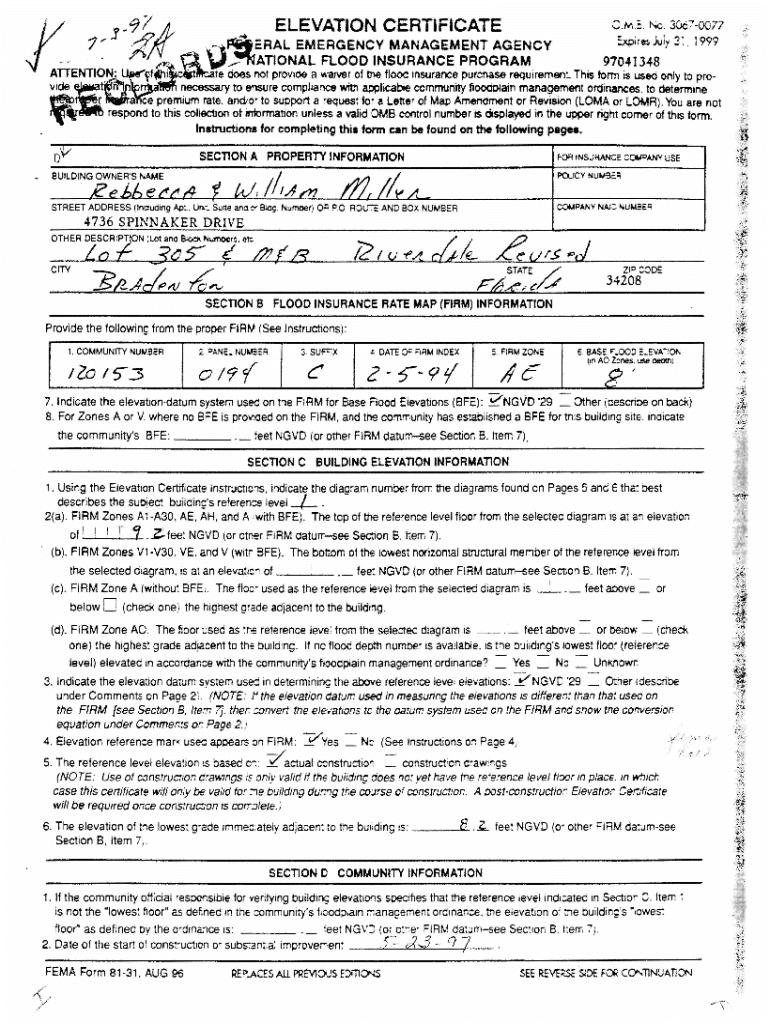 7-3-97
2A
RECORDS
ELEVATION CERTIFICATE
O.M.B. No. 3067-0077
Expires July 31, 1999
FEDERAL EMERGENCY MANAGEMENT AGENCY
NATIONAL FLOOD INSURANCE PROGRAM
97041348
ATTENTION: Use of this certificate does not provide a waiver of the flood insurance purchase requirement. This form is used only to pro-
vide elevation information necessary to ensure compliance with applicable community floodplain management ordinances, to determine
the proper insurance premium rate, and/or to support a request for a Letter of Map Amendment or Revision (LOMA or LOMR). You are not
required to respond to this collection of information unless a valid OMB control number is displayed in the upper right corner of this form.
Instructions for completing this form can be found on the following pages.
SECTION A PROPERTY INFORMATION
FOR INSURANCE COMPANY USE
BUILDING OWNER'S NAME
POLICY NUMBER
Rebbecca & William Miller
STREET ADDRESS (Including Apt., Unit, Suite and/or Bldg. Number) OR P.O. ROUTE AND BOX NUMBER
COMPANY NAIC NUMBER
4736 SPINNAKER DRIVE
OTHER DESCRIPTION (Lot and Block Numbers, etc.
Lot 305 & M&B Riverdale Revised
CITY
STATE
ZIP CODE
Bradenton
Florida
34208
SECTION B FLOOD INSURANCE RATE MAP (FIRM) INFORMATION
Provide the following from the proper FIRM (See Instructions):
1. COMMUNITY NUMBER
2. PANEL NUMBER
3. SUFFIX
4. DATE OF FIRM INDEX
5. FIRM ZONE
6. BASE FLOOD ELEVATION
(in AO Zones, use depth)
120153
0194
C
2-5-94
AE
8'
7. Indicate the elevation-datum system used on the FIRM for Base Flood Elevations (BFE): ✓ NGVD '29 Other (describe on back)
8. For Zones A or V, where no BFE is provided on the FIRM, and the community has established a BFE for this building site, indicate
the community's BFE: ______ . __ feet NGVD (or other FIRM datum–see Section B, Item 7).
SECTION C BUILDING ELEVATION INFORMATION
1. Using the Elevation Certificate instructions, indicate the diagram number from the diagrams found on Pages 5 and 6 that best
describes the subject building's reference level 1 .
2(a). FIRM Zones A1-A30, AE, AH, and A (with BFE). The top of the reference level floor from the selected diagram is at an elevation
of 9.2 feet NGVD (or other FIRM datum–see Section B, Item 7).
(b). FIRM Zones V1-V30, VE, and V (with BFE). The bottom of the lowest horizontal structural member of the reference level from
the selected diagram, is at an elevation of ______ . __ feet NGVD (or other FIRM datum–see Section B, Item 7).
(c). FIRM Zone A (without BFE). The floor used as the reference level from the selected diagram is __ . __ feet above __ or
below (check one) the highest grade adjacent to the building.
(d). FIRM Zone AO. The floor used as the reference level from the selected diagram is __ . __ feet above __ or below __ (check
one) the highest grade adjacent to the building. If no flood depth number is available, is the building's lowest floor (reference
level) elevated in accordance with the community's floodplain management ordinance? Yes No Unknown
3. Indicate the elevation datum system used in determining the above reference level elevations: ✓ NGVD '29 Other (describe
under Comments on Page 2). (NOTE: If the elevation datum used in measuring the elevations is different than that used on
the FIRM [see Section B, Item 7], then convert the elevations to the datum system used on the FIRM and show the conversion
equation under Comments on Page 2.)
4. Elevation reference mark used appears on FIRM: ✓ Yes No (See Instructions on Page 4)
5. The reference level elevation is based on: ✓ actual construction construction drawings
(NOTE: Use of construction drawings is only valid if the building does not yet have the reference level floor in place, in which
case this certificate will only be valid for the building during the course of construction. A post-construction Elevation Certificate
will be required once construction is complete.)
6. The elevation of the lowest grade immediately adjacent to the building is: 8.2 feet NGVD (or other FIRM datum-see
Section B, Item 7).
SECTION D COMMUNITY INFORMATION
1. If the community official responsible for verifying building elevations specifies that the reference level indicated in Section C, Item 1
is not the "lowest floor" as defined in the community's floodplain management ordinance, the elevation of the building's "lowest
floor" as defined by the ordinance is: ______ . __ feet NGVD (or other FIRM datum–see Section B, Item 7).
2. Date of the start of construction or substantial improvement 5-23-97 .
FEMA Form 81-31, AUG 96
REPLACES ALL PREVIOUS EDITIONS
SEE REVERSE SIDE FOR CONTINUATION